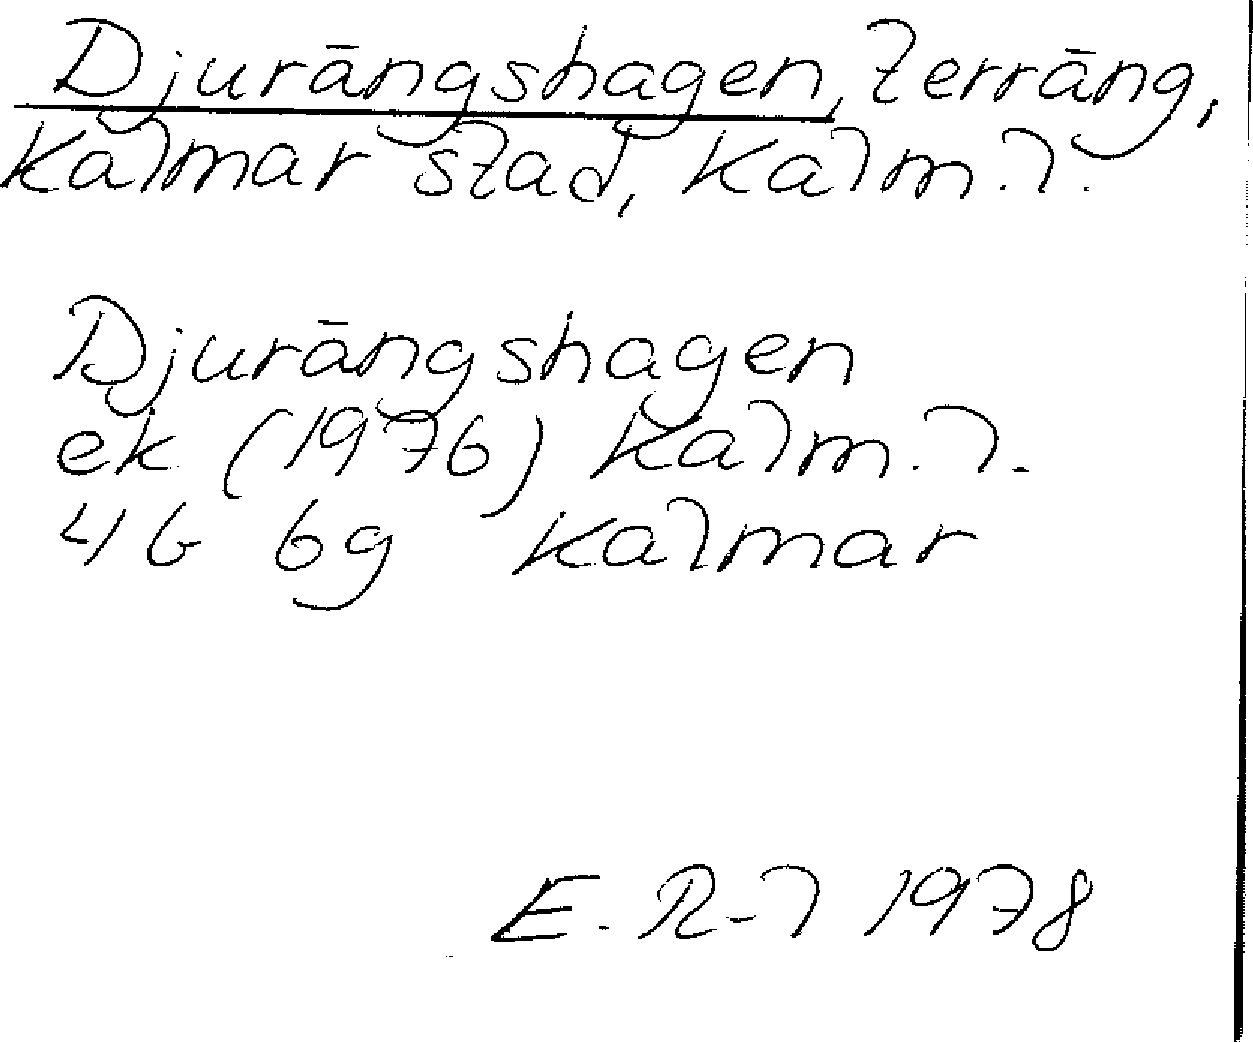 Djurängshagen, terräng,
Kalmar stad, Kalm. l.
Djurängshagen
ek (1976) Kalm. l.
4G 6g Kalmar
E. R-l 1978